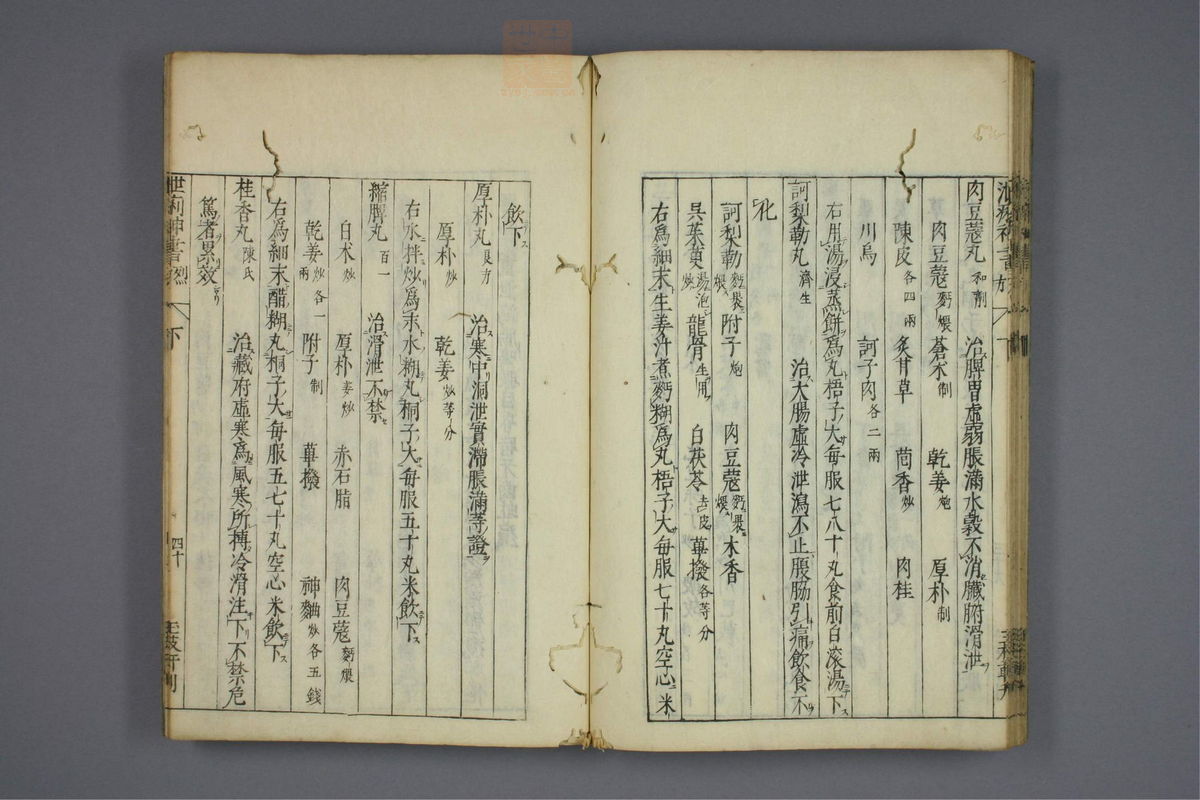 肉豆蔻丸 和劑 治脾胃虛弱脹滿水穀不消臟腑滑泄
肉豆蔻 麪煨 蒼朮 制 乾姜 炮 厚朴 制
陳皮 各四兩 炙甘草 茴香 炒 肉桂
川烏 訶子肉 各二兩
右用湯浸蒸餅爲丸梧子大每服七八十丸食前白滚湯下
訶梨勒丸 濟生 治大腸虛冷泄瀉不止脹脇引痛飲食不
化
訶梨勒 麪裹煨 附子 炮 肉豆蔻 麪裹煨 木香
吳茱萸 湯泡炒 龍骨 生用 白茯苓 去皮 蓽撥 各等分
右爲細末生姜汁煮麪糊爲丸梧子大每服七十丸空心米
飲下
厚朴丸 良方 治寒中洞泄實滯脹滿等證
厚朴 炒 乾姜 炒等分
右水拌炒爲末水糊丸桐子大每服五十丸米飲下
縮脾丸 百一 治滑泄不禁
白朮 炒 厚朴 姜炒 赤石脂 肉豆蔻 麪煨
乾姜 炒各一兩 附子 制 蓽撥 神麯 炒各五錢
右爲細末醋糊丸桐子大每服五七十丸空心米飲下
桂香丸 陳氏 治藏府虛寒爲風寒所搏冷滑注下不禁危
篤者累效
下 四十